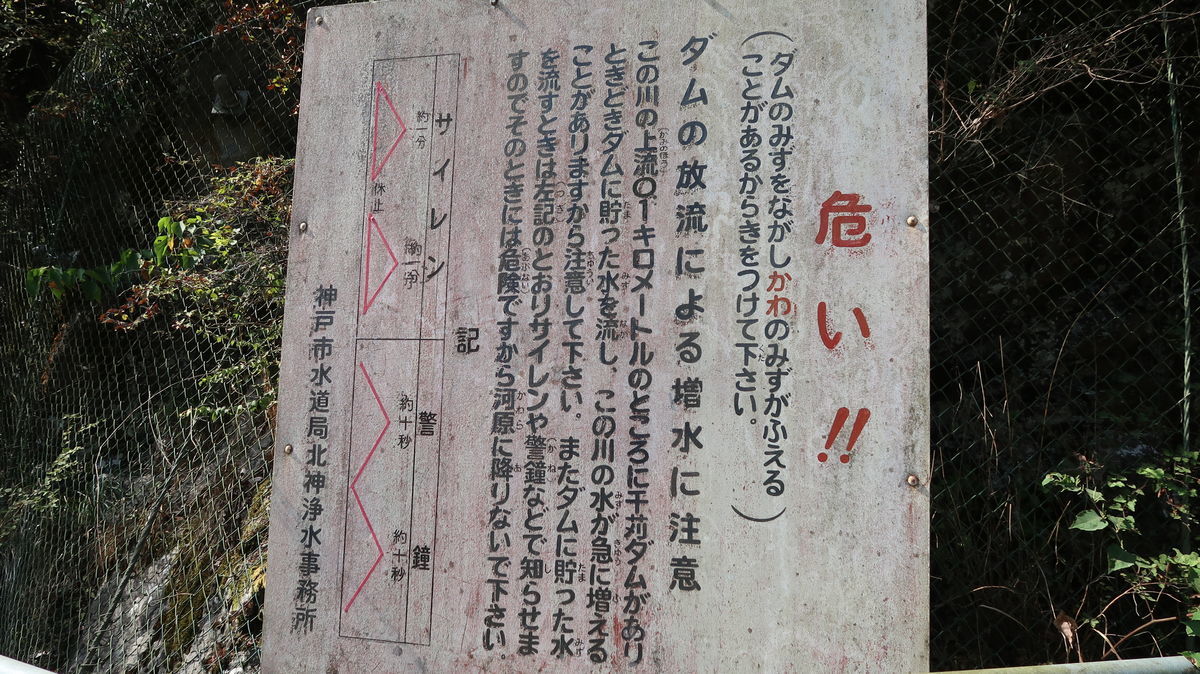 危い!!
(ダムのみずをながしかわのみずがふえる
ことがあるからきをつけて下さい。)
ダムの放流による増水に注意
この川の上流〇1キロメートルのところに千苅ダムがあり
ときどきダムに貯った水を流し、この川の水が急に増える
ことがありますから注意して下さい。またダムに貯った水
を流すときは左記のとおりサイレンや警鐘などで知らせま
すのでそのときには危険ですから河原に降りないで下さい。
記
サイレン
約一分
休止
約一分
警鐘
約十秒
約十秒
神戸市水道局北神浄水事務所